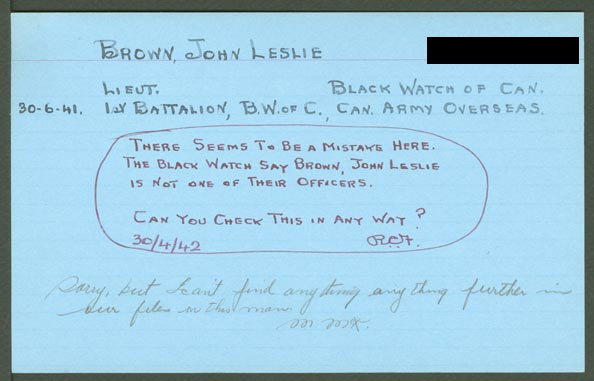 BROWN, JOHN LESLIE
LIEUT. BLACK WATCH OF CAN.
30-6-41. 1st BATTALION, B.W. OF C., CAN. ARMY OVERSEAS.
THERE SEEMS TO BE A MISTAKE HERE.
THE BLACK WATCH SAY BROWN, JOHN LESLIE
IS NOT ONE OF THEIR OFFICERS.
CAN YOU CHECK THIS IN ANY WAY?
30/4/42
Sorry, but I can't find anything anything further in
our files on this man